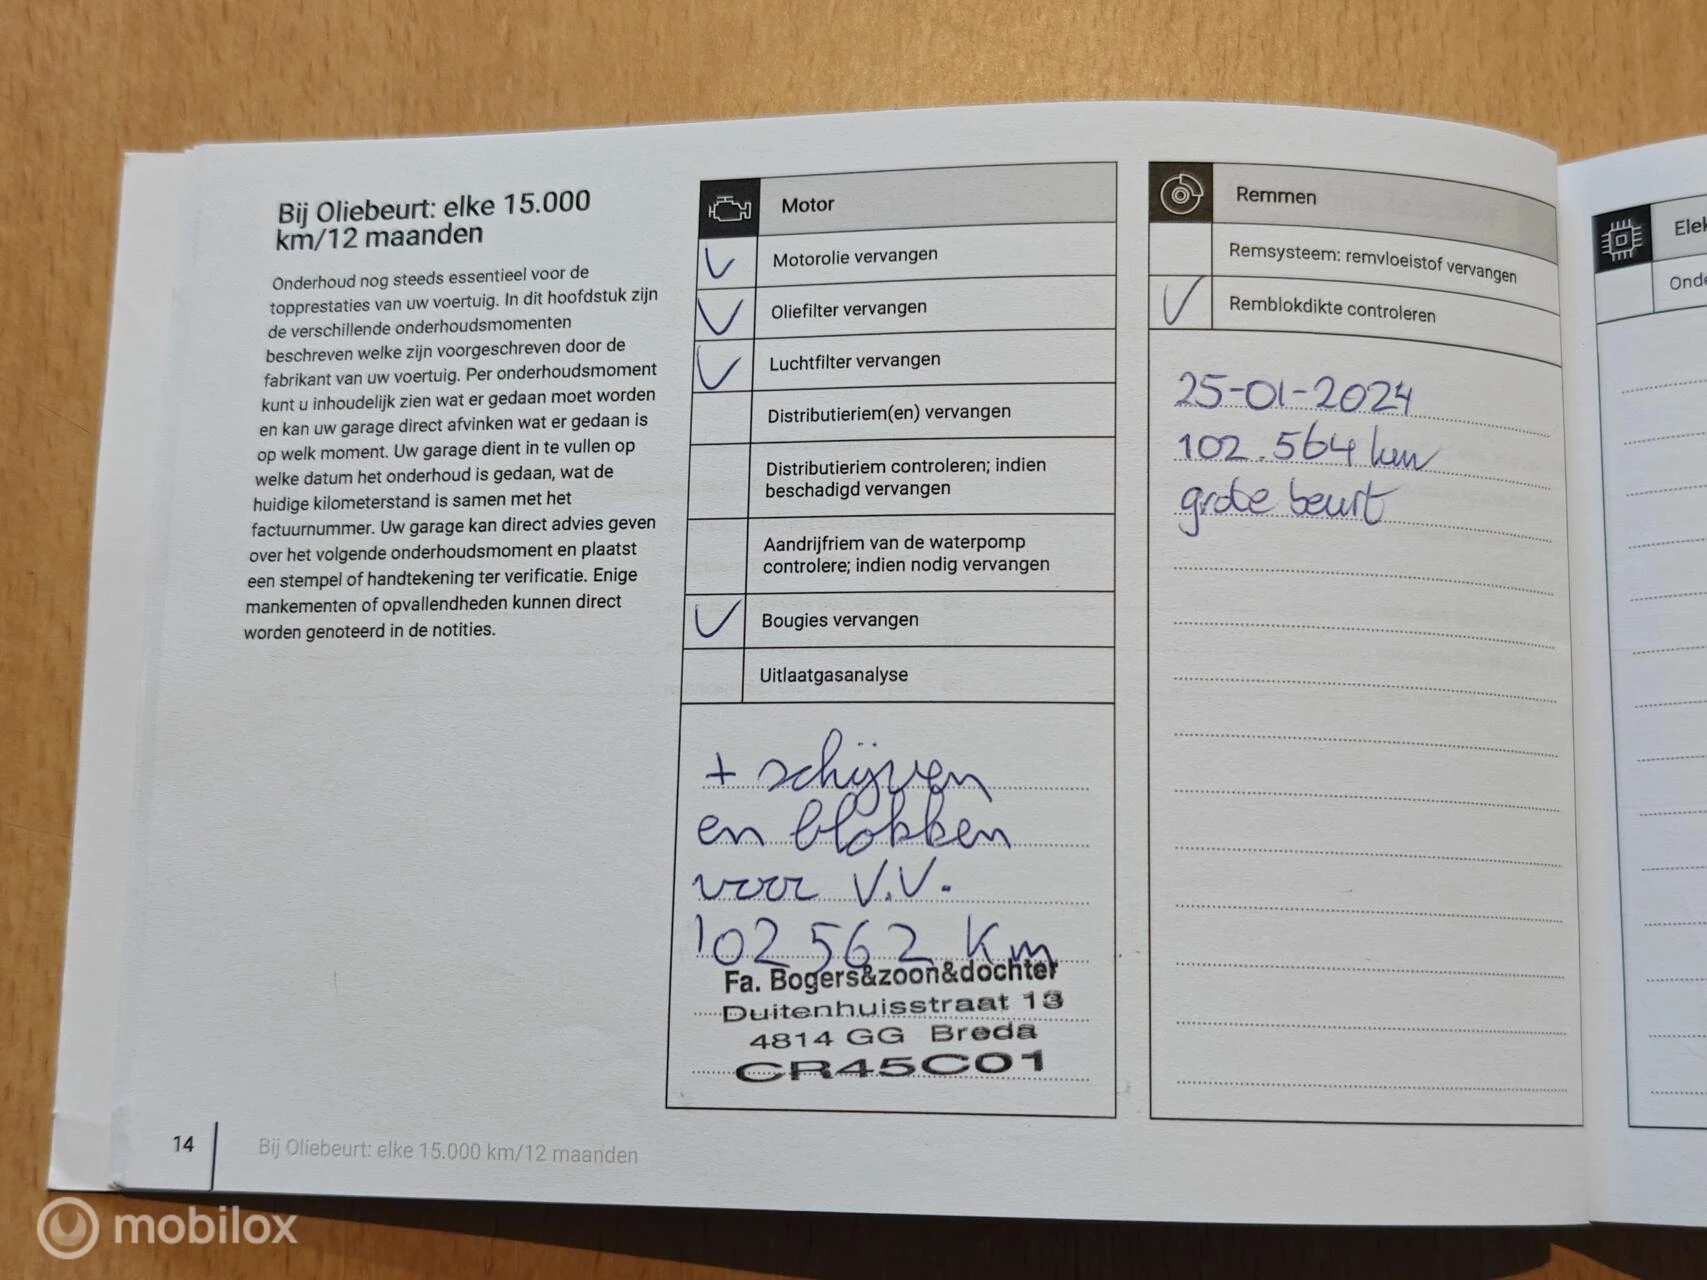 Bij Oliebeurt: elke 15.000
km/12 maanden
Onderhoud nog steeds essentieel voor de
topprestaties van uw voertuig. In dit hoofdstuk zijn
de verschillende onderhoudsmomenten
beschreven welke zijn voorgeschreven door de
fabrikant van uw voertuig. Per onderhoudsmoment
kunt u inhoudelijk zien wat er gedaan moet worden
en kan uw garage direct afvinken wat er gedaan is
op welk moment. Uw garage dient in te vullen op
welke datum het onderhoud is gedaan, wat de
huidige kilometerstand is samen met het
factuurnummer. Uw garage kan direct advies geven
over het volgende onderhoudsmoment en plaatst
een stempel of handtekening ter verificatie. Enige
mankementen of opvallendheden kunnen direct
worden genoteerd in de notities.
Motor
Motorolie vervangen
Oliefilter vervangen
Luchtfilter vervangen
Distributieriem(en) vervangen
Distributieriem controleren; indien
beschadigd vervangen
Aandrijfriem van de waterpomp
controlere; indien nodig vervangen
Bougies vervangen
Uitlaatgasanalyse
+ schijven
en blokken
voor V.V.
102 562 Km
Fa. Bogers&zoon&dochter
Duitenhuisstraat 13
4814 GG Breda
CR45C01
Remmen
Remsysteem: remvloeistof vervangen
Remblokdikte controleren
25-01-2024
102.564 km
grote beurt
Elek
Onde
14
Bij Oliebeurt: elke 15.000 km/12 maanden
mobilox